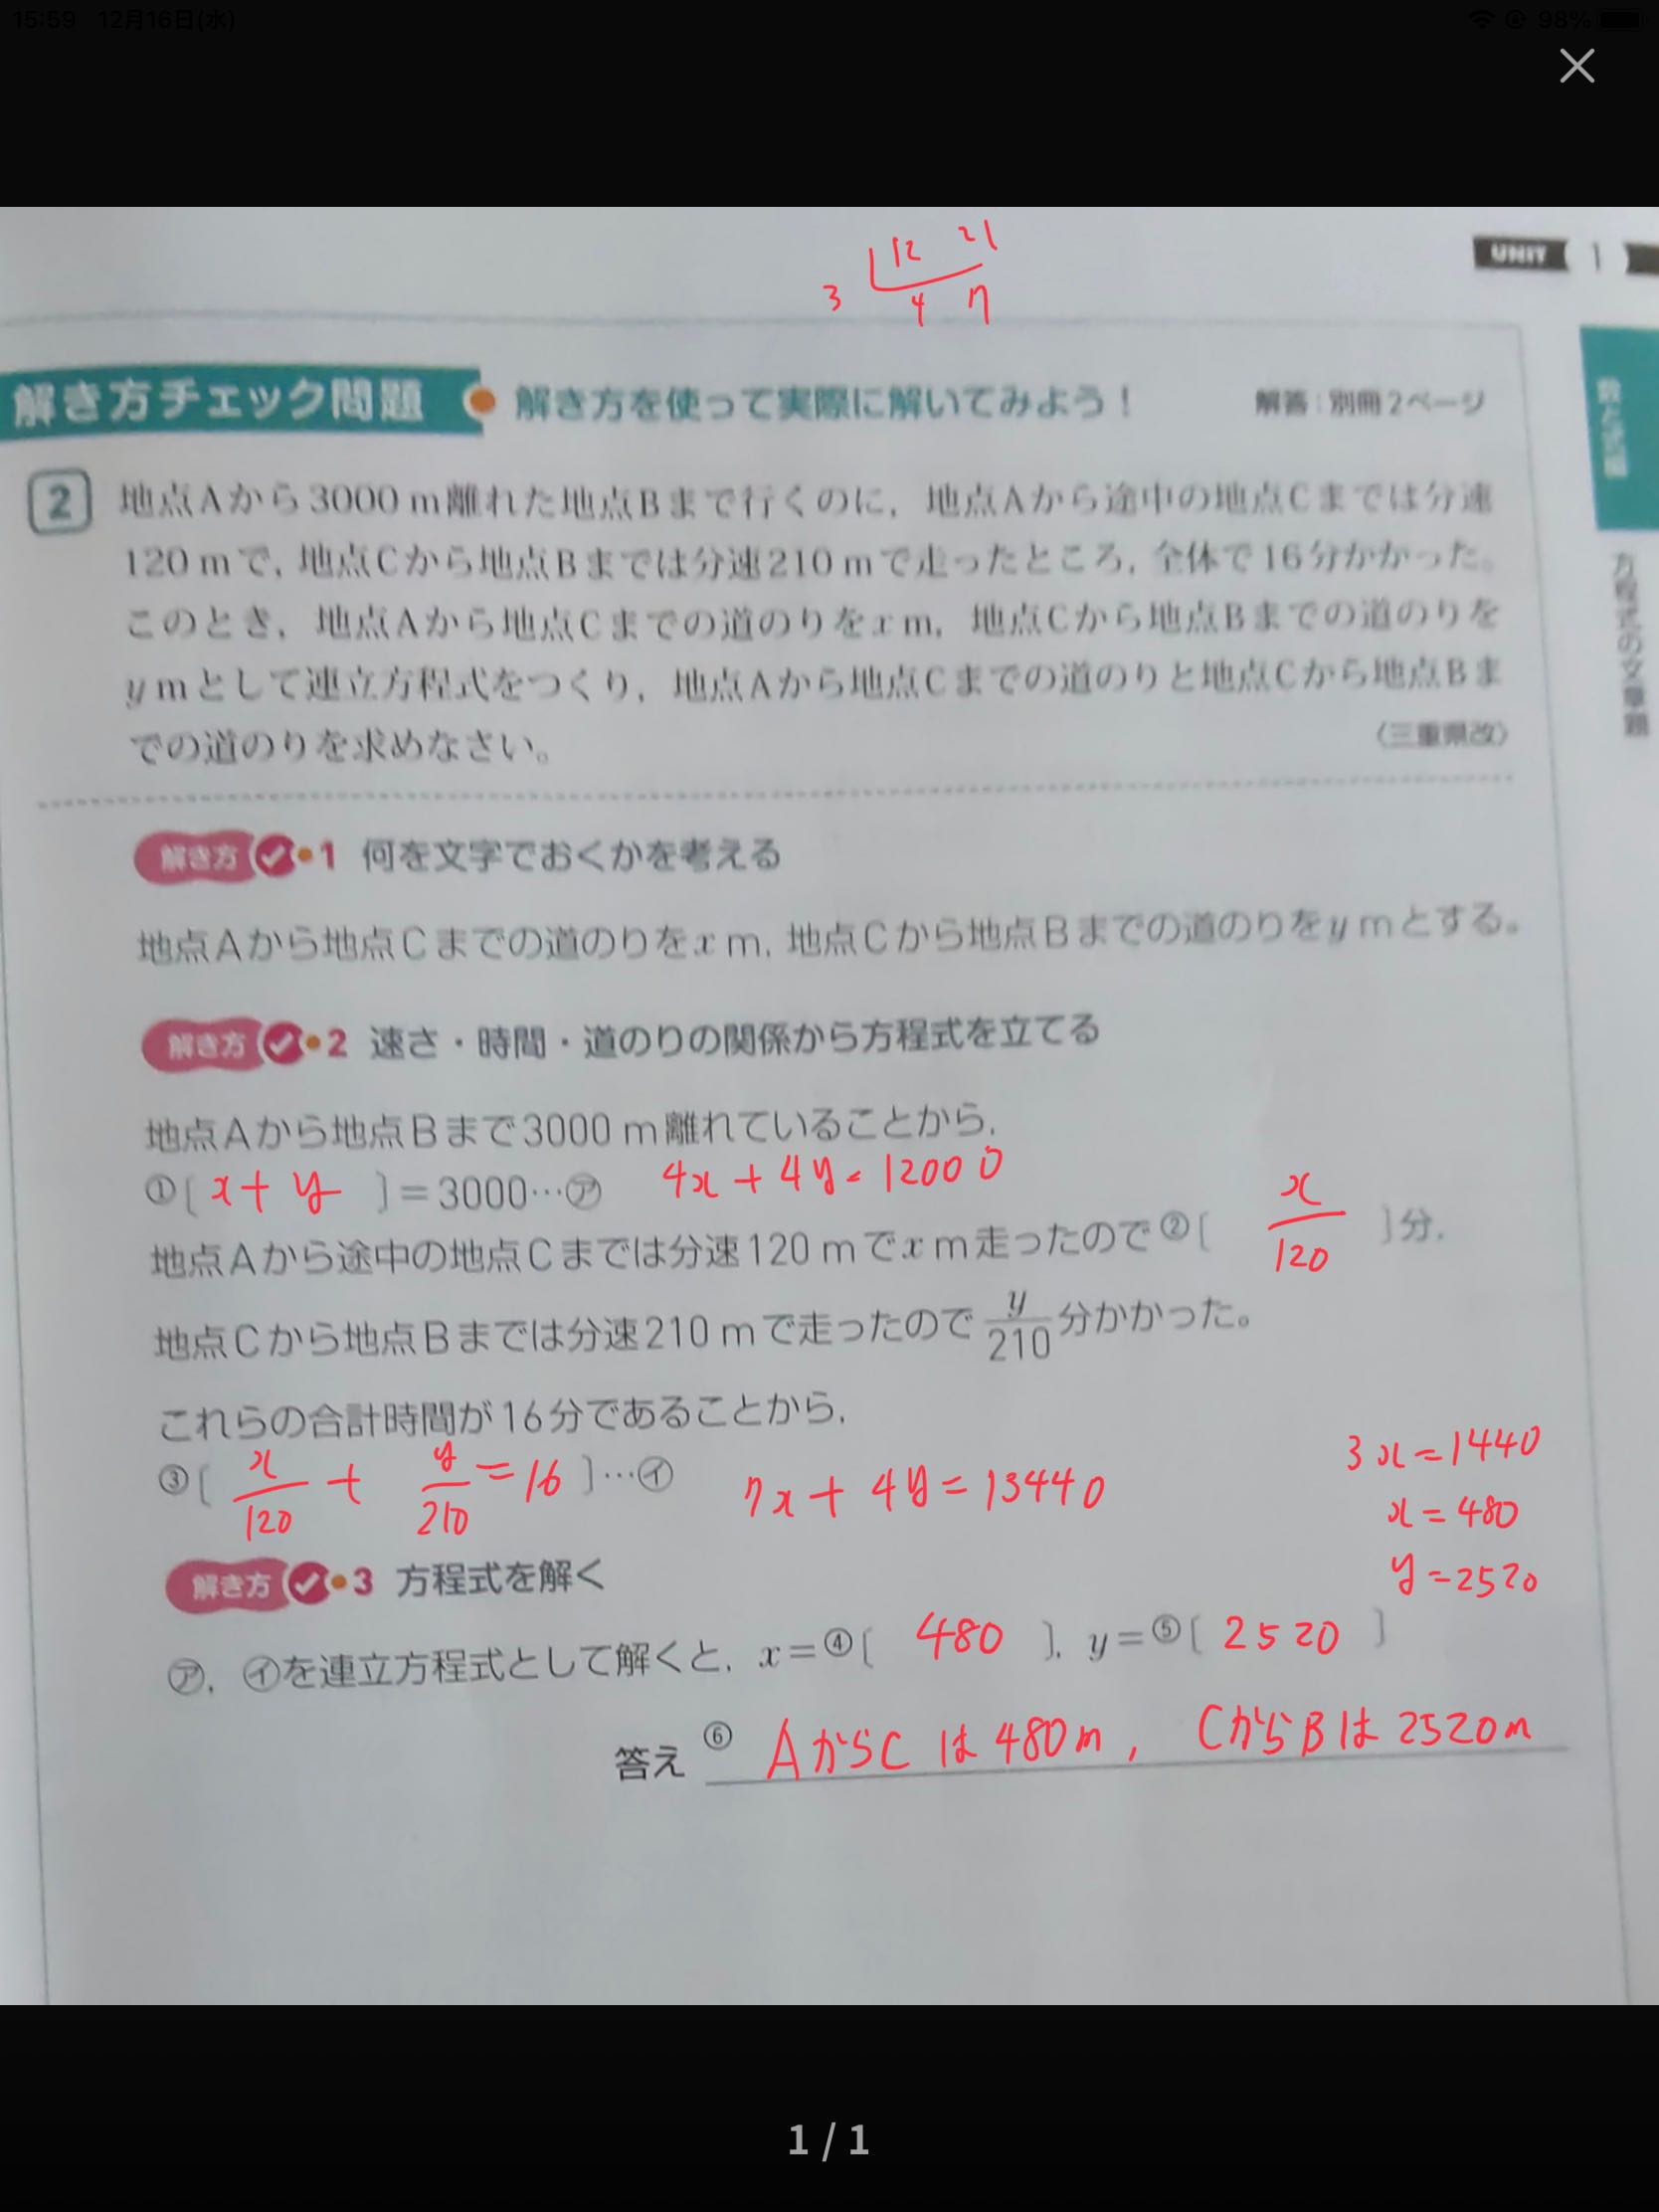 15:59 12月16日(水) 98%
12 21
3 4 7
UNIT 1
解き方チェック問題 解き方を使って実際に解いてみよう! 解答:別冊2ページ
数と式編
方程式の文章題
2 地点Aから3000m離れた地点Bまで行くのに,地点Aから途中の地点Cまでは分速
120mで,地点Cから地点Bまでは分速210mで走ったところ,全体で16分かかった。
このとき,地点Aから地点Cまでの道のりをxm,地点Cから地点Bまでの道のりを
ymとして連立方程式をつくり,地点Aから地点Cまでの道のりと地点Cから地点Bま
での道のりを求めなさい。 〈三重県改〉
解き方 1 何を文字でおくかを考える
地点Aから地点Cまでの道のりをxm,地点Cから地点Bまでの道のりをymとする。
解き方 2 速さ・時間・道のりの関係から方程式を立てる
地点Aから地点Bまで3000m離れていることから,
①〔x+y〕=3000…㋐ 4x+4y=12000
地点Aから途中の地点Cまでは分速120mでxm走ったので②〔x/120〕分,
地点Cから地点Bまでは分速210mで走ったのでy/210分かかった。
これらの合計時間が16分であることから,
③〔x/120+y/210=16〕…㋑ 7x+4y=13440
3x=1440
x=480
y=2520
解き方 3 方程式を解く
㋐,㋑を連立方程式として解くと,x=④〔480〕,y=⑤〔2520〕
答え ⑥ AからCは480m, CからBは2520m
1 / 1